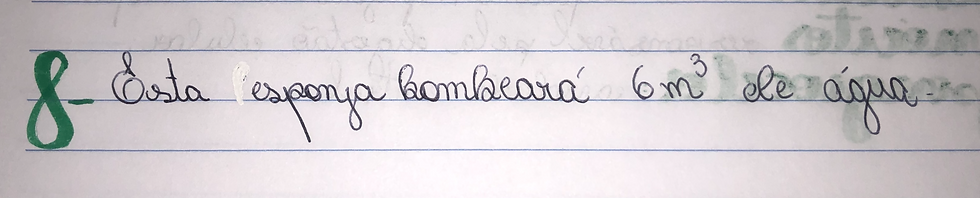 8- Esta esponja bombeará 6m³ de água.